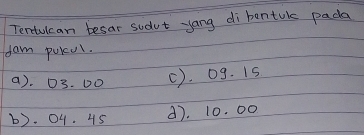 Tentukan besar sudut yang di bentuk pada
jam pukul.
a). 03.00 c). 09.15
b). 04.45 d). 10.00